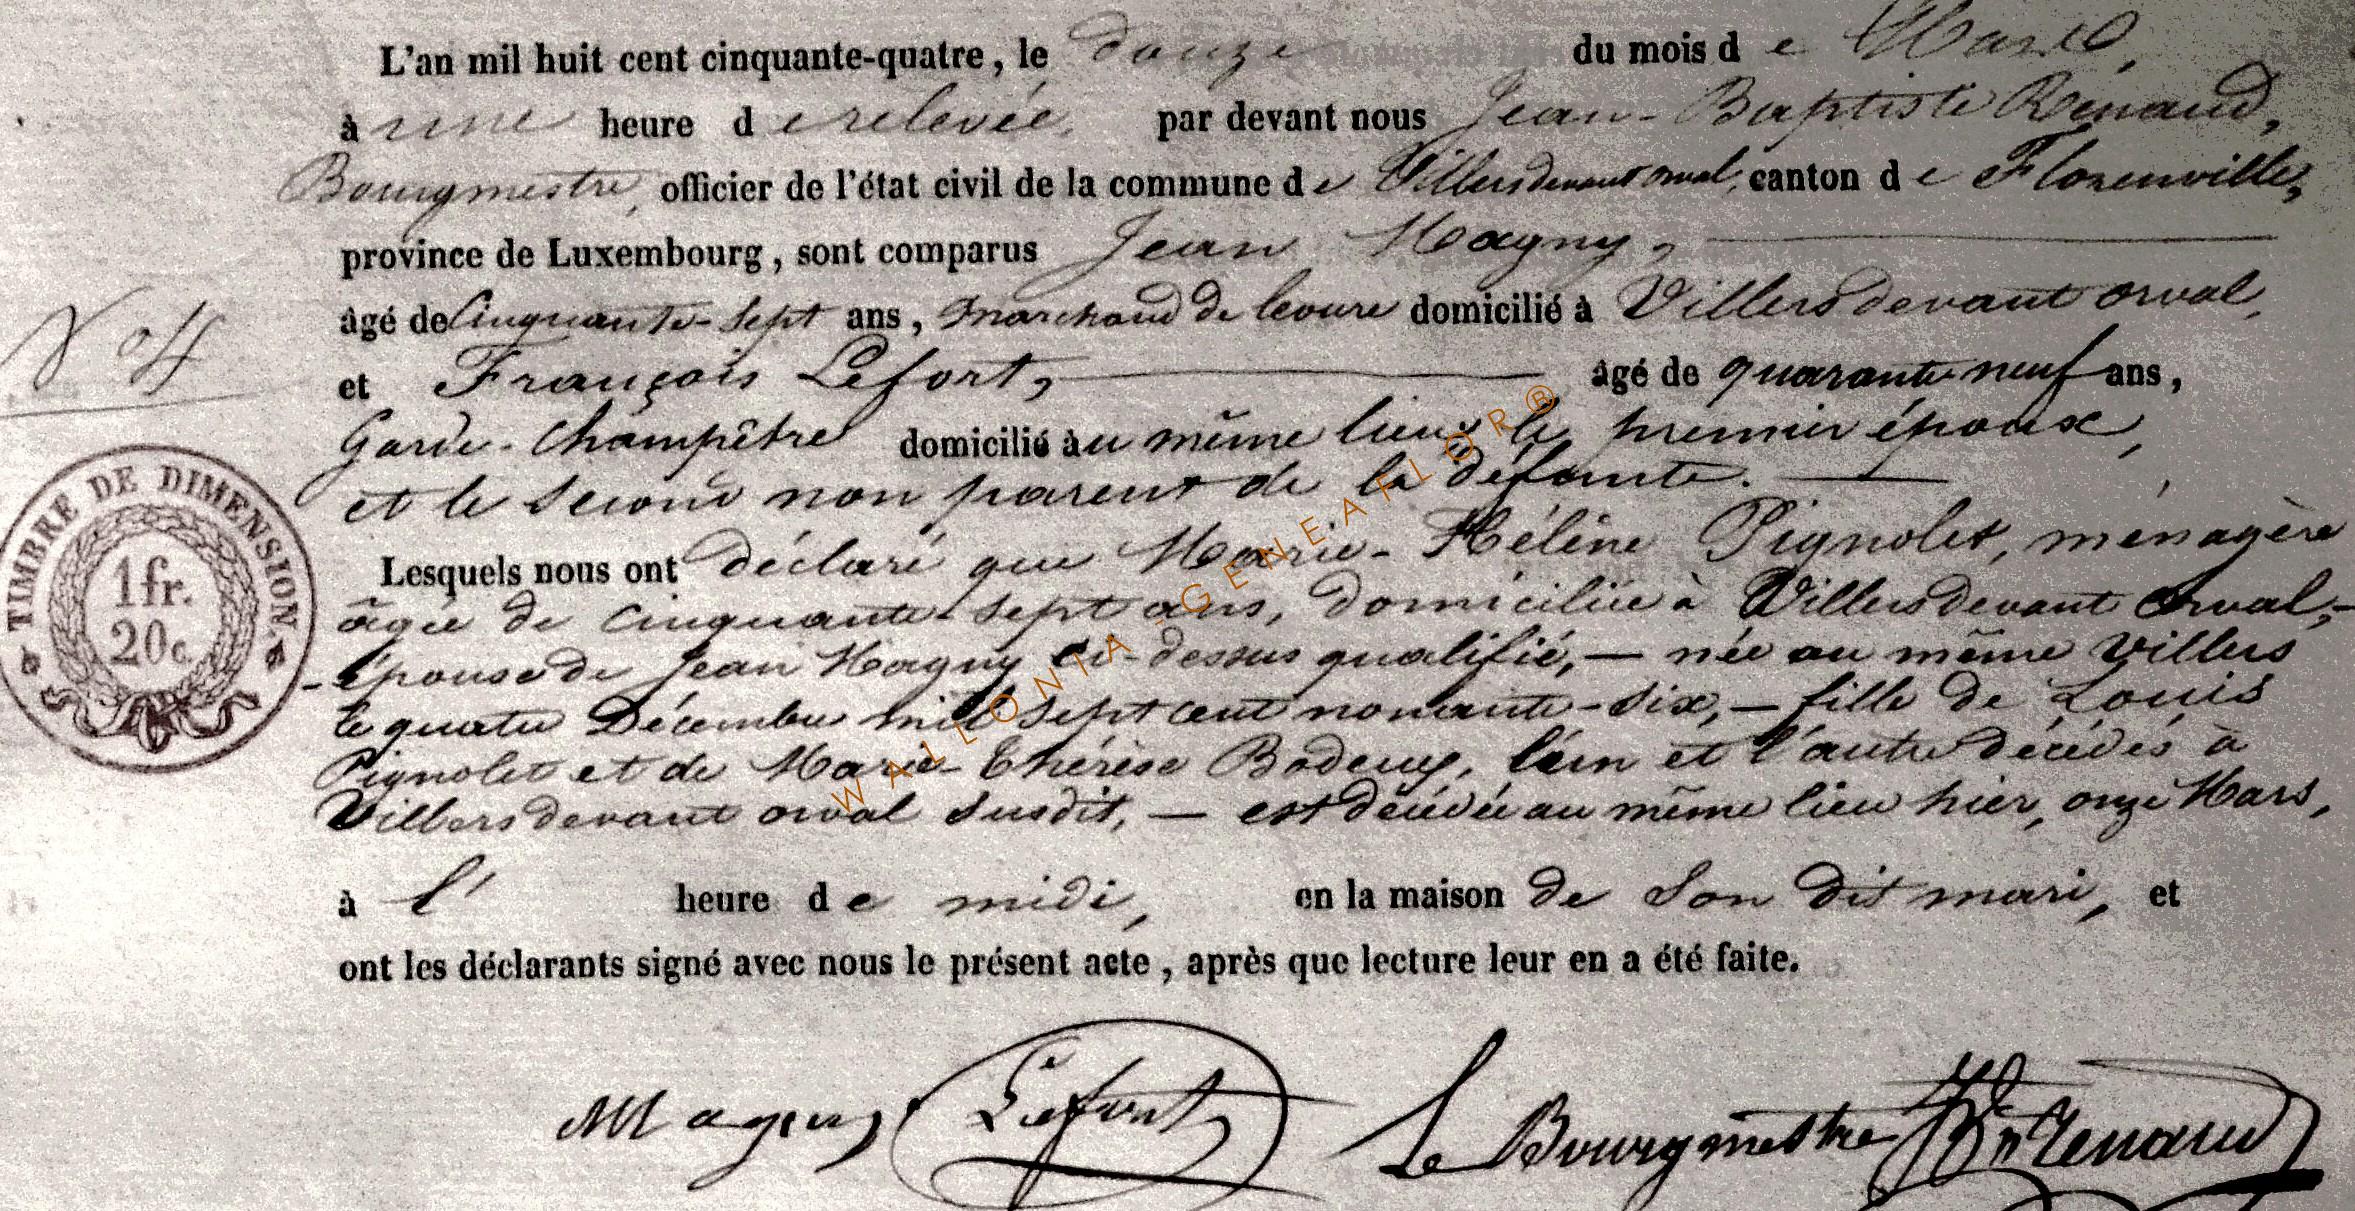 L'an mil huit cent cinquante-quatre, le douze du mois de Mars,
à une heure de relevée, par devant nous Jean-Baptiste Renaud,
Bourgmestre, officier de l'état civil de la commune de Villers devant orval, canton de Florenville,
province de Luxembourg, sont comparus Jean Magny,
âgé de Cinquante-sept ans, marchand de domicilié à Villers devant orval,
et François Lefort, âgé de quarante neuf ans,
Garde-Champêtre domicilié au même lieu, le premier époux,
et le second non parent de la défunte.
Lesquels nous ont déclaré que Marie-Hélène Pignolet, ménagère
âgée de cinquante-sept ans, domiciliée à Villers devant Orval,
épouse de Jean Magny ci-dessus qualifié, — née au même Villers
le quatre Décembre mil sept cent nonante-six, — fille de Louis
Pignolet et de Marie-Thérèse l'un et l'autre décédés à
Villers devant orval susdit, — est décédée au même lieu hier, onze Mars,
à l' heure de midi, en la maison de son dit mari, et
ont les déclarants signé avec nous le présent acte, après que lecture leur en a été faite.
Magny Lefort Le Bourgmestre Renaud
TIMBRE DE DIMENSION.
1 fr.
20 c.
WALLONIA - GENEAFLOR®